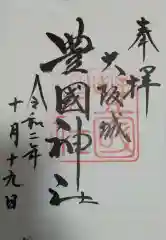 奉拝
大坂城
豊國神社
令和二年
十月十九日